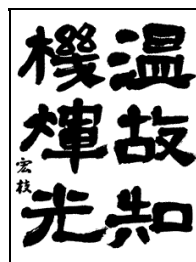 温故知
機輝光
宏枝